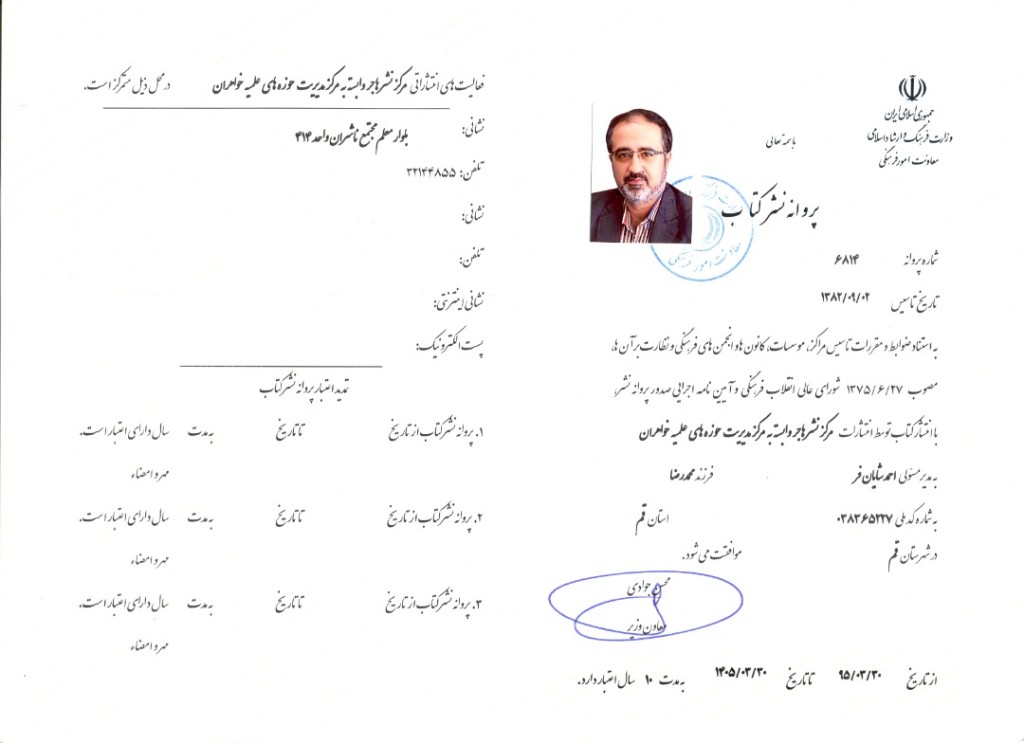 جمهوری اسلامی ایران
وزارت فرهنگ و ارشاد اسلامی
معاونت امور فرهنگی
باسمه تعالی
پروانه نشر کتاب
معاونت امور فرهنگی
شماره پروانه ۶۸۱۴
تاریخ تاسیس ۱۳۸۲/۰۹/۰۲
به استناد ضوابط و مقررات تاسیس مراکز، موسسات، کانون ها و انجمن های فرهنگی و نظارت بر آن ها،
مصوب ۱۳۷۵/۶/۲۷ شورای عالی انقلاب فرهنگی و آیین نامه اجرایی صدور پروانه نشر،
با انتشار کتاب توسط انتشارات مرکز نشر هاجر وابسته به مرکز مدیریت حوزه های علمیه خواهران
به مدیر مسئولی احمد شایان فر فرزند محمدرضا
به شماره کد ملی ۰۳۸۳۶۵۲۲۷ استان قم
در شهرستان قم موافقت می شود.
محسن جوادی
معاون وزیر
از تاریخ ۹۵/۰۳/۳۰ تا تاریخ ۱۴۰۵/۰۳/۳۰ به مدت ۱۰ سال اعتبار دارد.
فعالیت های انتشاراتی مرکز نشر هاجر وابسته به مرکز مدیریت حوزه های علمیه خواهران در محل ذیل متمرکز است.
نشانی: بلوار معلم مجتمع ناشران واحد ۴۱۴
تلفن: ۳۲۱۴۴۸۵۵
نشانی:
تلفن:
نشانی اینترنتی:
پست الکترونیک:
تمدید اعتبار پروانه نشر کتاب
۱. پروانه نشر کتاب از تاریخ تا تاریخ به مدت سال دارای اعتبار است.
مهر و امضاء
۲. پروانه نشر کتاب از تاریخ تا تاریخ به مدت سال دارای اعتبار است.
مهر و امضاء
۳. پروانه نشر کتاب از تاریخ تا تاریخ به مدت سال دارای اعتبار است.
مهر و امضاء